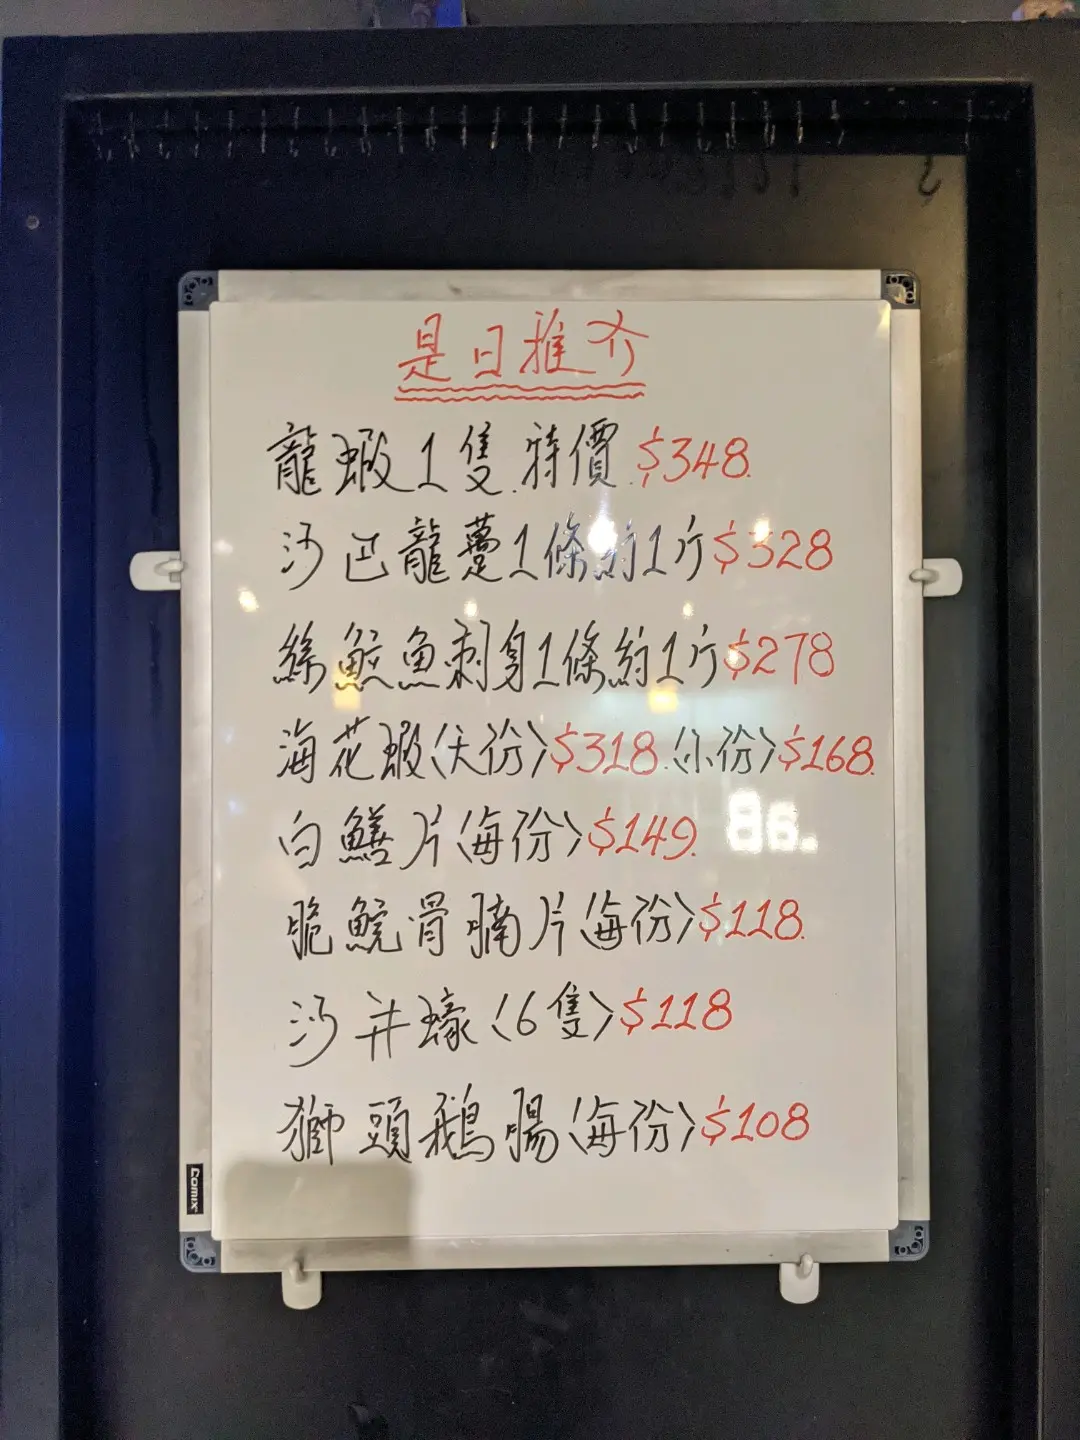 是日推介
龍蝦1隻.特價 $348.
沙巴龍躉1條約1斤$328
絲鯇魚刺身1條約1斤$278
海花蝦(大份)$318.(小份)$168.
白鱔片(每份)$149.
脆鯇骨腩片(每份)$118.
沙井蠔(6隻)$118
獅頭鵝腸(每份)$108
Comix